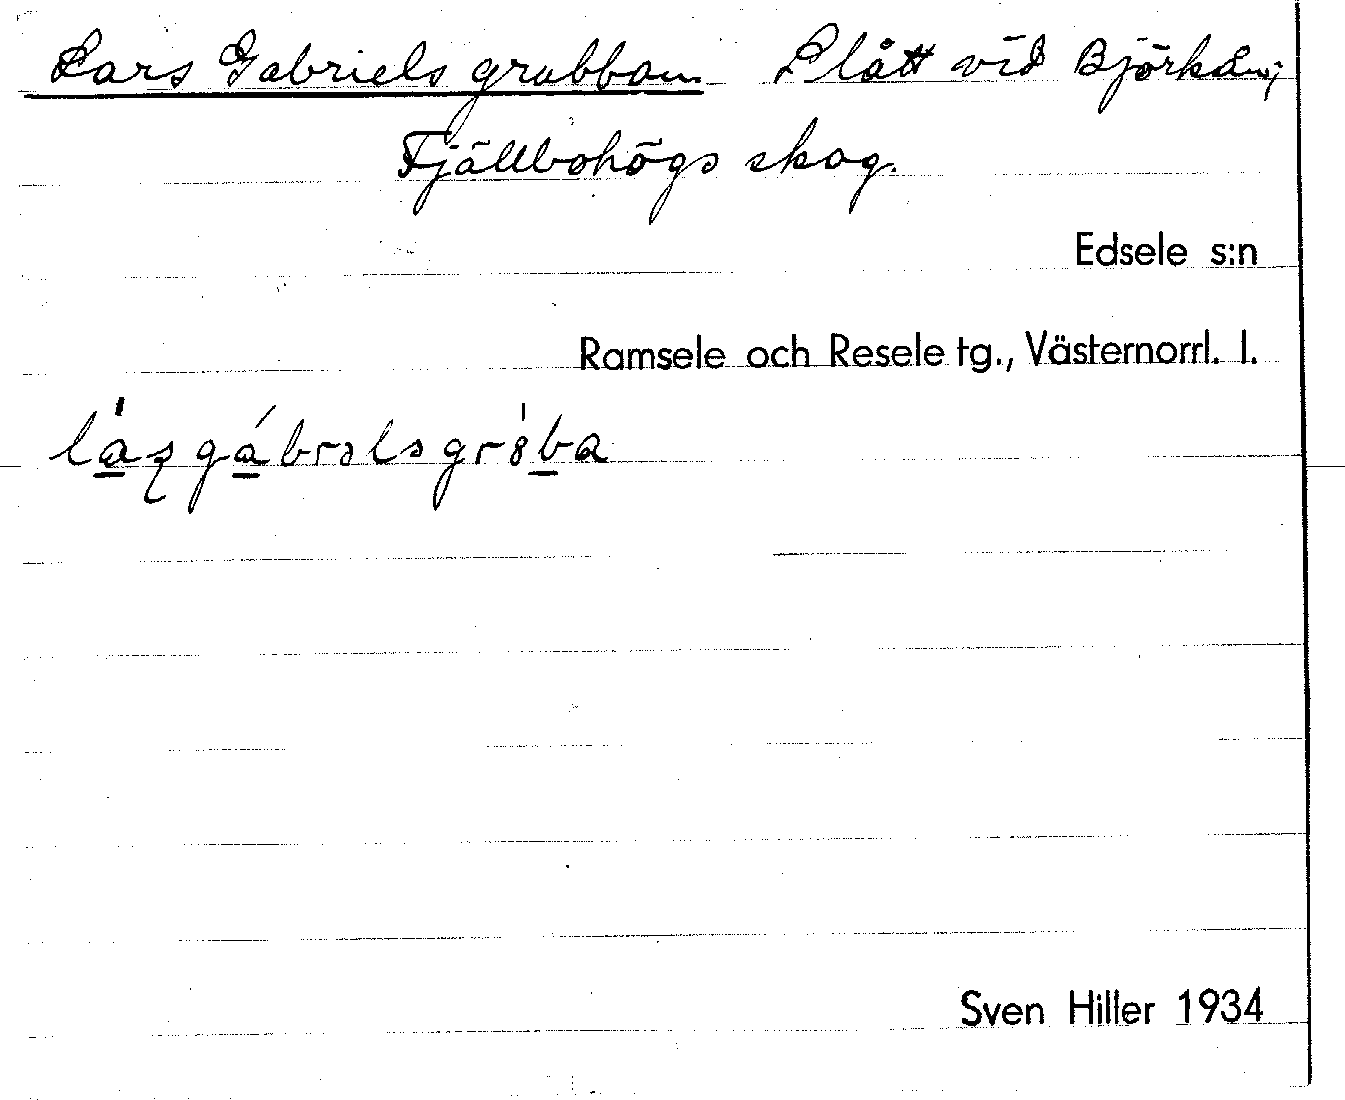 Lars Gabrielsgrubban. Slått vid Björkån;
Fjällbohögs skog.
Edsele s:n
Ramsele och Resele tg., Västernorrl. l.
Sven Hiller 1934